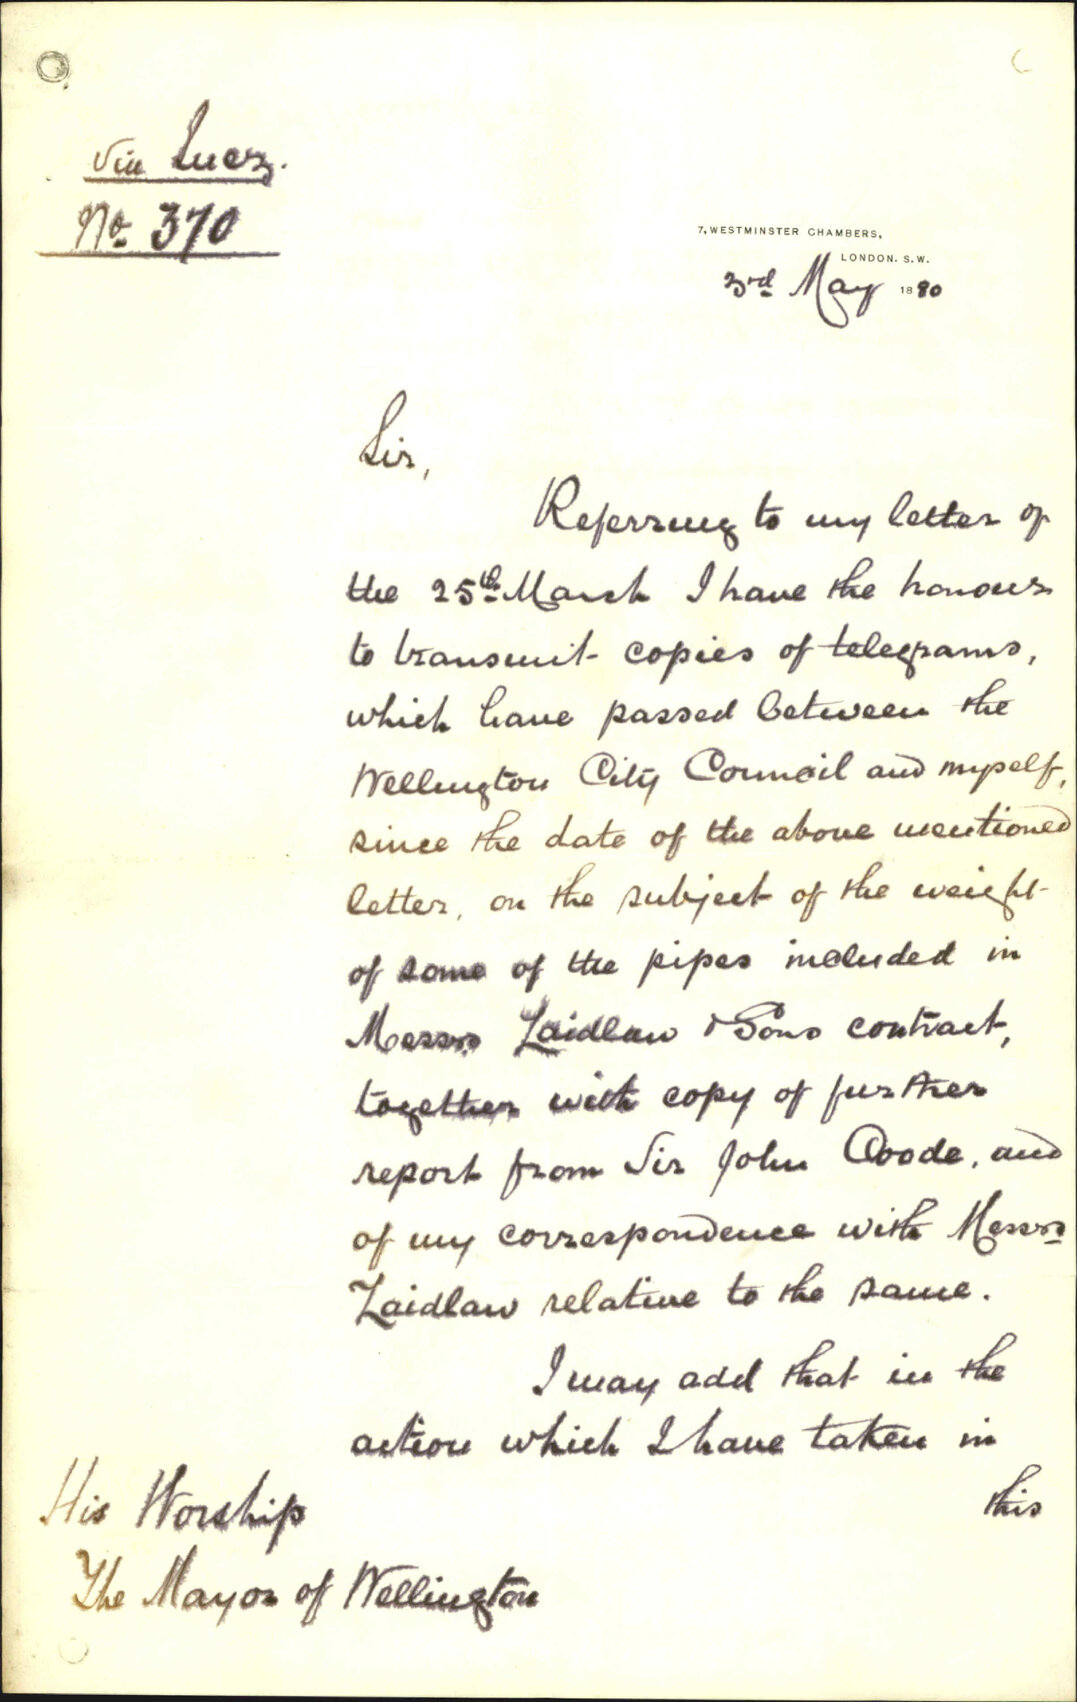 via Suez.
No. 370
7, WESTMINSTER CHAMBERS,
LONDON. S.W.
3rd May 1880
Sir,
Referring to my letter of
the 25th March I have the honour
to transmit copies of telegrams,
which have passed between the
Wellington City Council and myself,
since the date of the above mentioned
letter, on the subject of the weight
of some of the pipes included in
Messrs Laidlaw & Sons contract,
together with copy of further
report from Sir John Coode, and
of my correspondence with Messrs
Laidlaw relative to the same.
I may add that in the
action which I have taken in
this
His Worship
The Mayor of Wellington